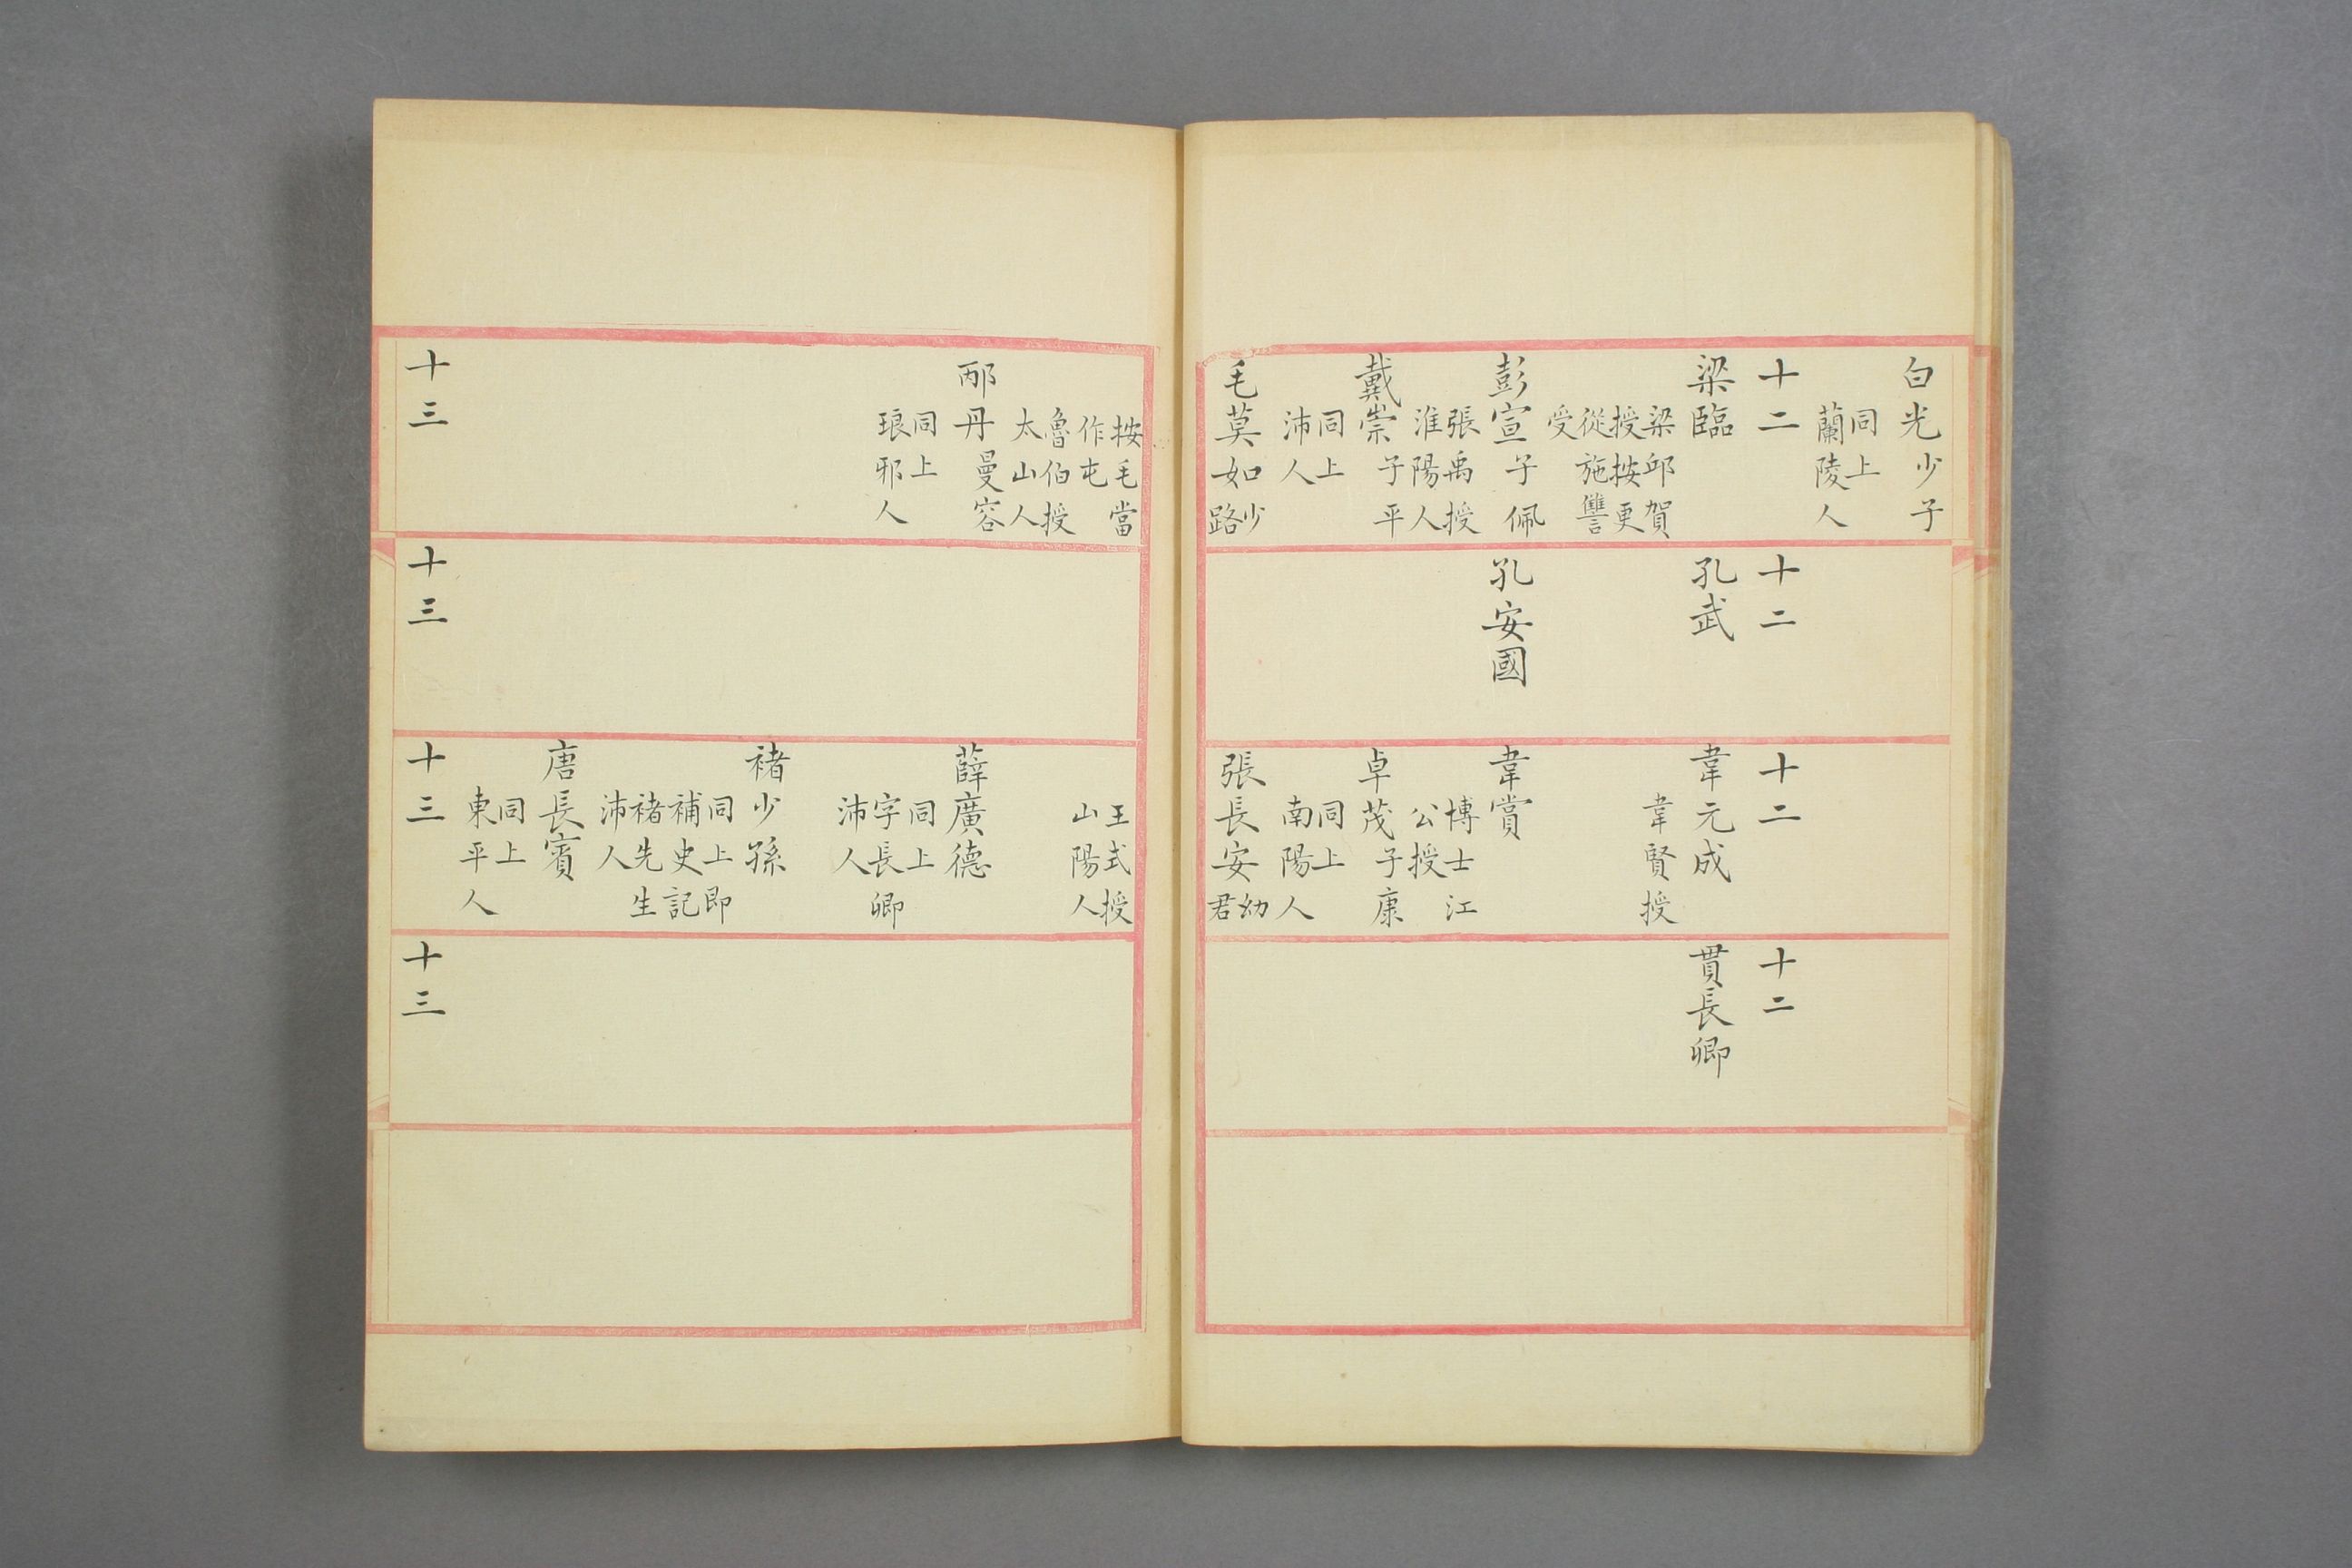 白光少子
同上
蘭陵人
十二
梁臨
梁邱賀
授按更
從施讐
受
彭宣子佩
張禹授
淮陽人
戴崇子平
同上
沛人
毛莫如少路
十二
孔武
孔安國
十二
韋元成
韋賢授
韋賞
博士江
公授
卓茂子康
同上
南陽人
張長安幼君
十二
貫長卿
按毛當
作屯
魯伯授
太山人
邴丹曼容
同上
琅邪人
十三
十三
王式授
山陽人
薛廣德
同上
字長卿
沛人
褚少孫
同上即
補史記
褚先生
沛人
唐長賓
同上
東平人
十三
十三